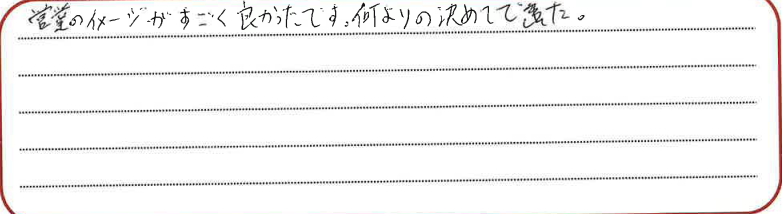 営業のイメージがすごく良かったです。何よりの決めてでした。